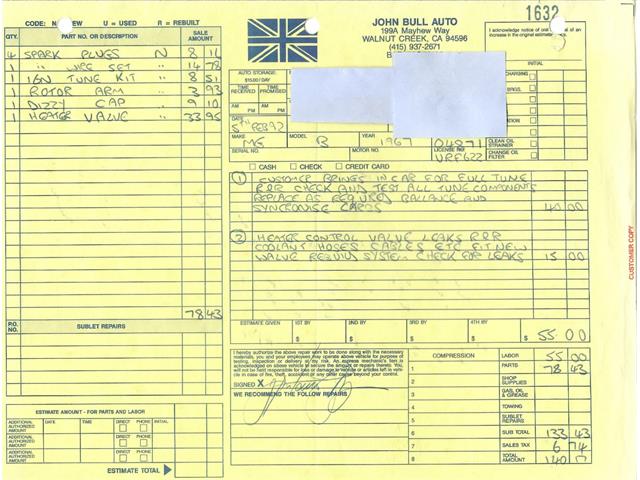 CODE: N = NEW U = USED R = REBUILT
1632
JOHN BULL AUTO
199A Mayhew Way
WALNUT CREEK, CA 94596
(415) 937-2671
I acknowledge notice of oral
increase in the original estimate
INITIAL
QTY. PART NO. OR DESCRIPTION SALE AMOUNT
4 SPARK PLUGS N 8 16
1 " WIRE SET " 14 78
1 IGN TUNE KIT " 8 51
1 ROTOR ARM " 3 93
1 DIZZY CAP " 9 10
1 HEATER VALVE " 33 95
78 43
AUTO STORAGE:
$15.00 / DAY
TIME RECEIVED TIME PROMISED
AM PM AM PM
DATE
5TH FEB 92
MAKE MODEL YEAR
MG B 1967 04871
SERIAL NO. MOTOR NO. LICENSE NO.
VRF622
CHARGING
BRGS.
CLEAN OIL STRAINER
CHANGE OIL FILTER
CASH CHECK CREDIT CARD
1 CUSTOMER BRINGS IN CAR FOR FULL TUNE
R&R CHECK AND TEST ALL TUNE COMPONENTS
REPLACE AS REQUIRED BALLANCE AND
SYNCRONISE CARBS 40 00
2 HEATER CONTROL VALVE LEAKS R&R
COOLANT HOSES CABLES ETC FIT NEW
VALVE REBUILD SYSTEM CHECK FOR LEAKS 15 00
CUSTOMER COPY
P.O. NO. SUBLET REPAIRS
ESTIMATE GIVEN 1ST BY 2ND BY 3RD BY 4TH BY
$ $ $ $ $ 55 00
I hereby authorize the above repair work to be done along with the necessary
materials, you and your employees may operate above vehicle for purpose of
testing, inspection or delivery at my risk. An express mechanic's lien is
acknowledged on above vehicle to secure the amount of repairs thereto. You
will not be held responsible for loss or damage to vehicle or articles left in vehicle
in case of fire, theft, accident or any other cause beyond your control.
SIGNED X
WE RECOMMEND THE FOLLOW REPAIRS
COMPRESSION
1
2
3
4
5
6
7
8
LABOR 55 00
PARTS 78 43
SHOP SUPPLIES
GAS, OIL & GREASE
TOWING
SUBLET REPAIRS
SUB TOTAL 133 43
SALES TAX 6 74
TOTAL AMOUNT 140 17
ESTIMATE AMOUNT - FOR PARTS AND LABOR
ADDITIONAL AUTHORIZED AMOUNT DATE TIME DIRECT PHONE INITIAL DIRECT PHONE
ADDITIONAL AUTHORIZED AMOUNT
ADDITIONAL AUTHORIZED AMOUNT
ESTIMATE TOTAL